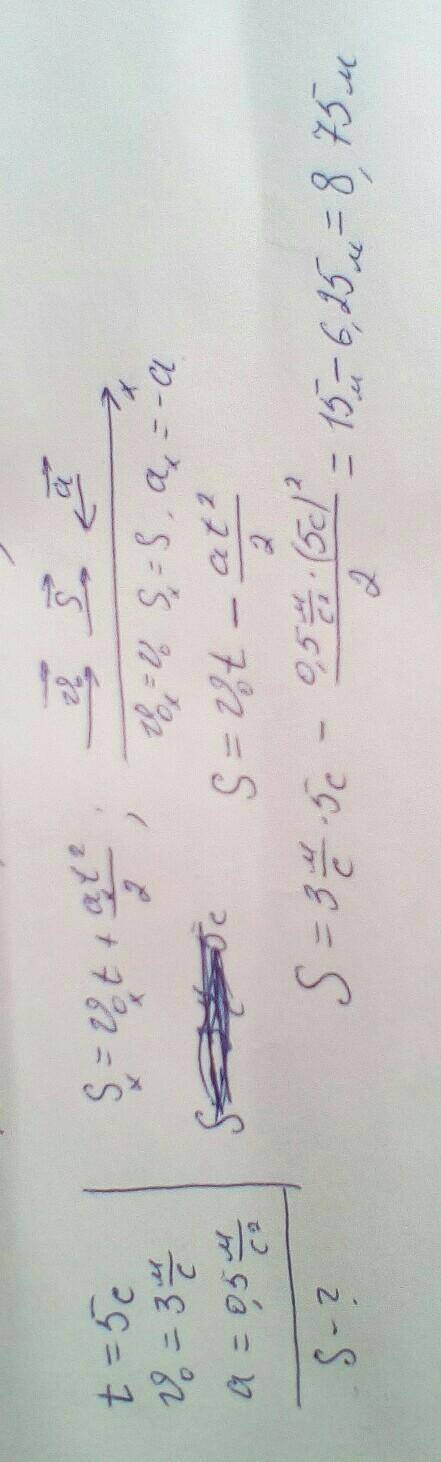 t = 5с
v₀ = 3 м/с
a = 0,5 м/с²
S - ?
Sₓ = v₀ₓt + aₓt²/2 ;
v₀ S a
x
v₀ₓ = v₀ Sₓ = S. aₓ = -a
S 5с
S = v₀t - at²/2
S = 3 м/с · 5с - 0,5 м/с² · (5с)²/2 = 15м - 6,25м = 8,75м